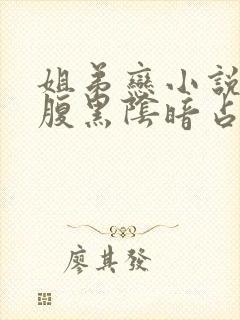 姐弟戀小說
腹黑陰暗占
廖其發